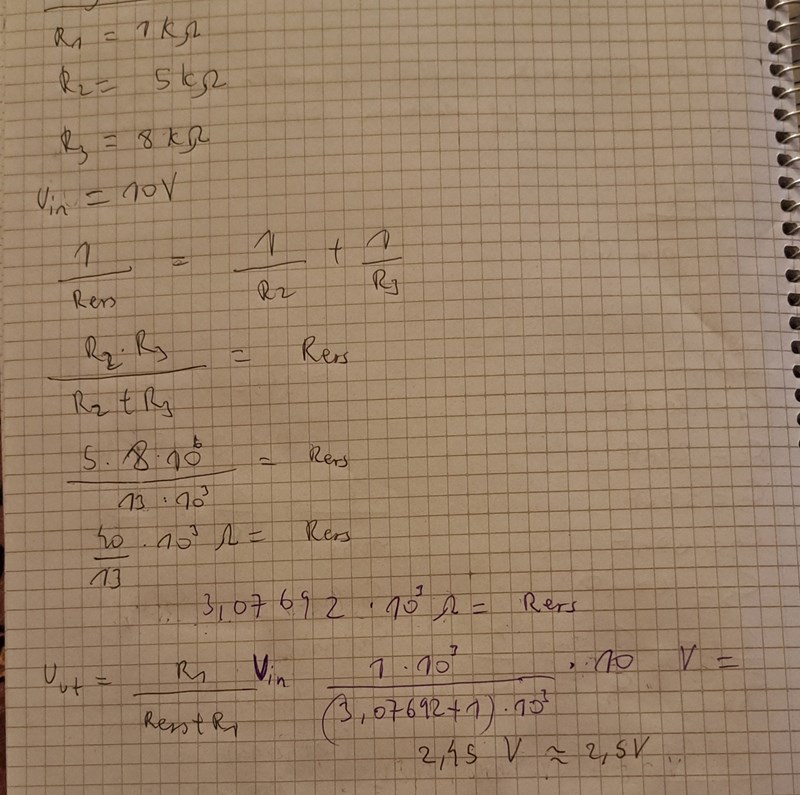 R1 = 1 kΩ
R2 = 5 kΩ
R3 = 8 kΩ
Uin = 10V
1/Rers = 1/R2 + 1/R3
R2 · R3 / R2 + R3 = Rers
5 · 8 · 10^6 / 13 · 10^3 = Rers
40/13 · 10^3 Ω = Rers
3,07692 · 10^3 Ω = Rers
Uut = R1 / Rers + R1 Uin 1 · 10^3 / (3,07692 + 1) · 10^3 · 10 V =
2,45 V ≈ 2,5V